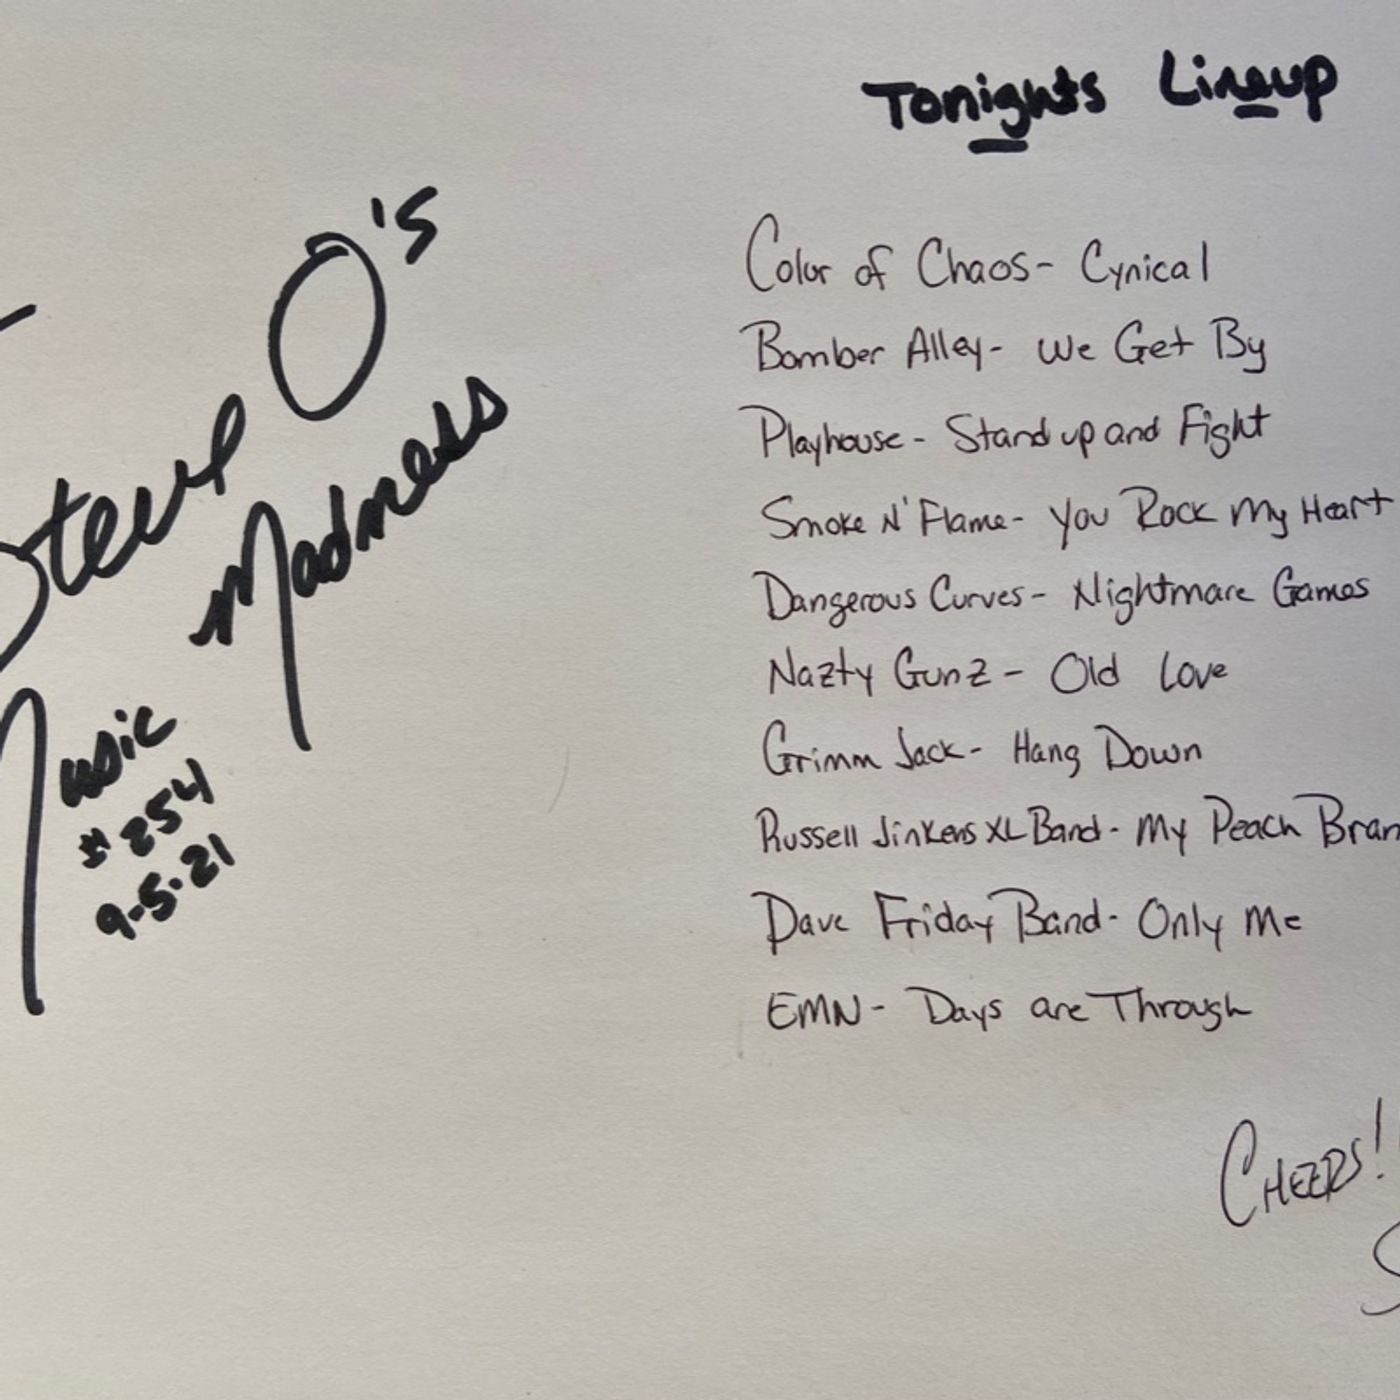 Steve O's
Madness
Music
#254
9-5-21
Tonights Lineup
Color of Chaos - Cynical
Bomber Alley - We Get By
Playhouse - Stand up and Fight
Smoke N' Flame - You Rock My Heart
Dangerous Curves - Nightmare Games
Nazty Gunz - Old Love
Grimm Jack - Hang Down
Russell Jinkens XL Band - My Peach Bran
Dave Friday Band - Only Me
EMN - Days are Through
CHEERS!